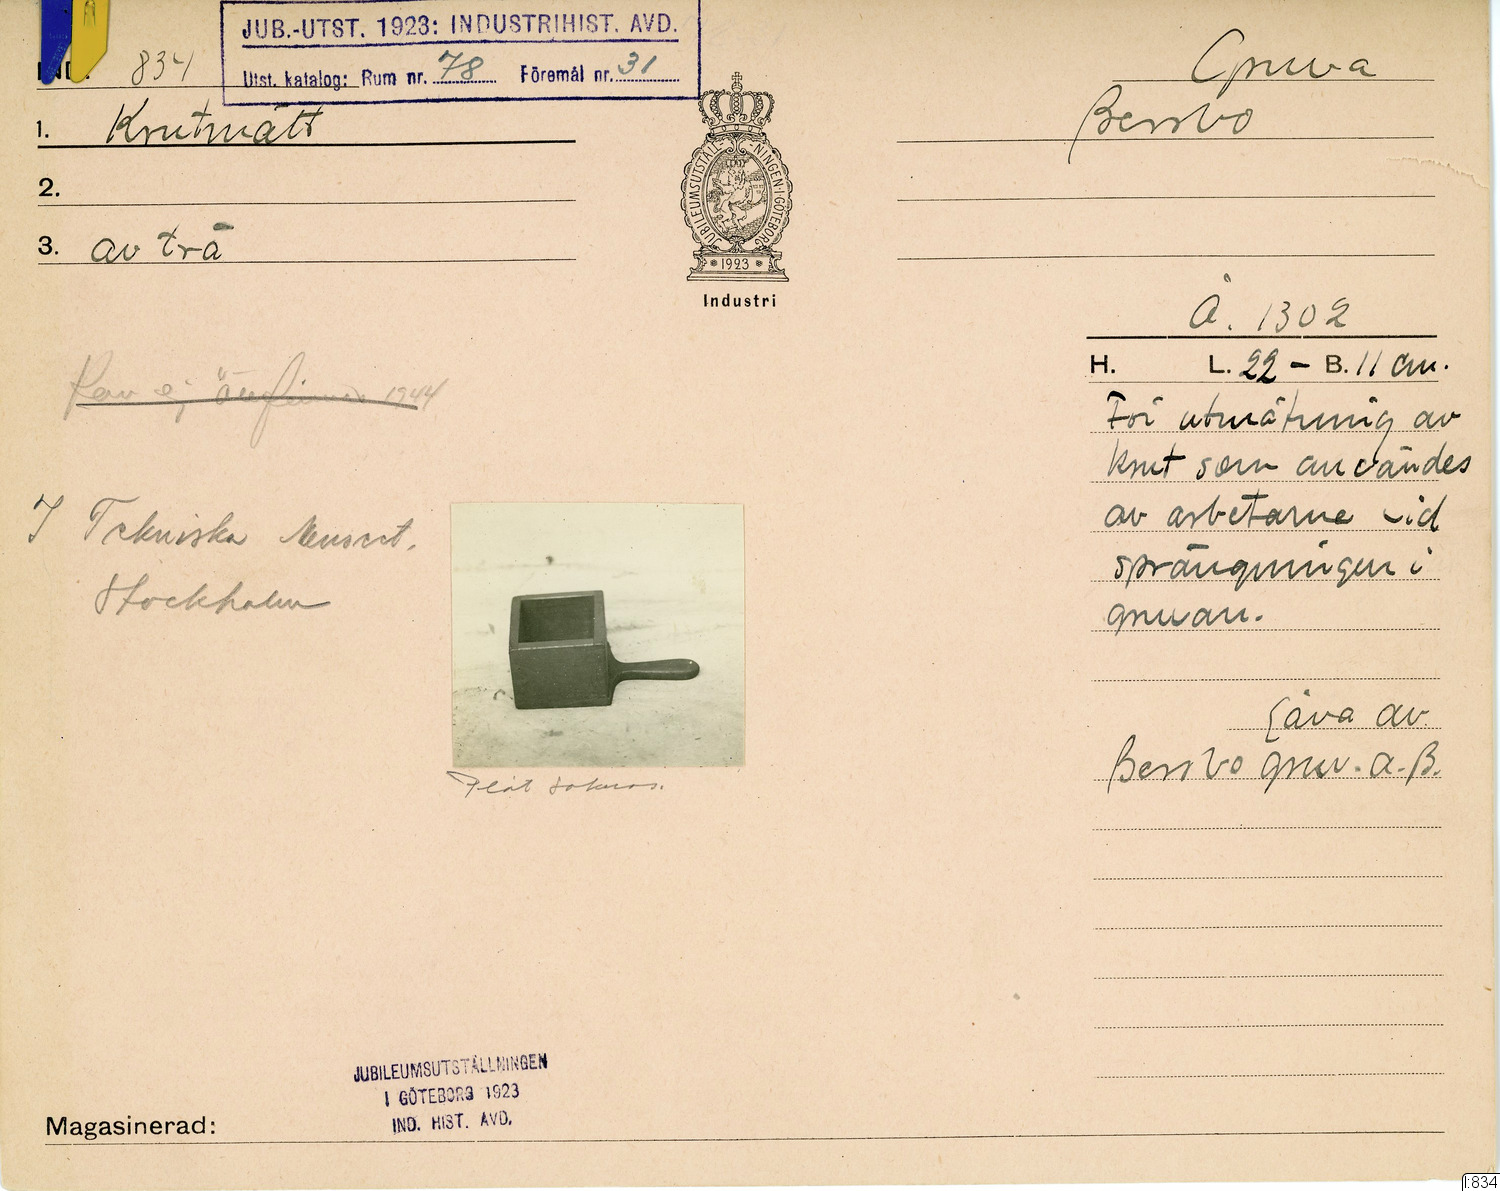 JUB.-UTST. 1923: INDUSTRIHIST. AVD.
Utst. katalog: Rum nr. 78 Föremål nr. 31
IND. 834
1. Krutmått
2.
3. av trä
JUBILEUMSUTSTÄLLNINGEN I GÖTEBORG
1923
Industri
Gruva
Bersbo
Å. 1302
H. L. 22 - B. 11 cm.
För utmätning av
krut som användes
av arbetarne vid
sprängningen i
gruvan.
Gåva av
Bersbo gruv. A.B.
Kan ej återfinnas 1944
I Tekniska Museet.
Stockholm
Plåt saknas.
JUBILEUMSUTSTÄLLNINGEN
I GÖTEBORG 1923
IND. HIST. AVD.
Magasinerad:
I:834